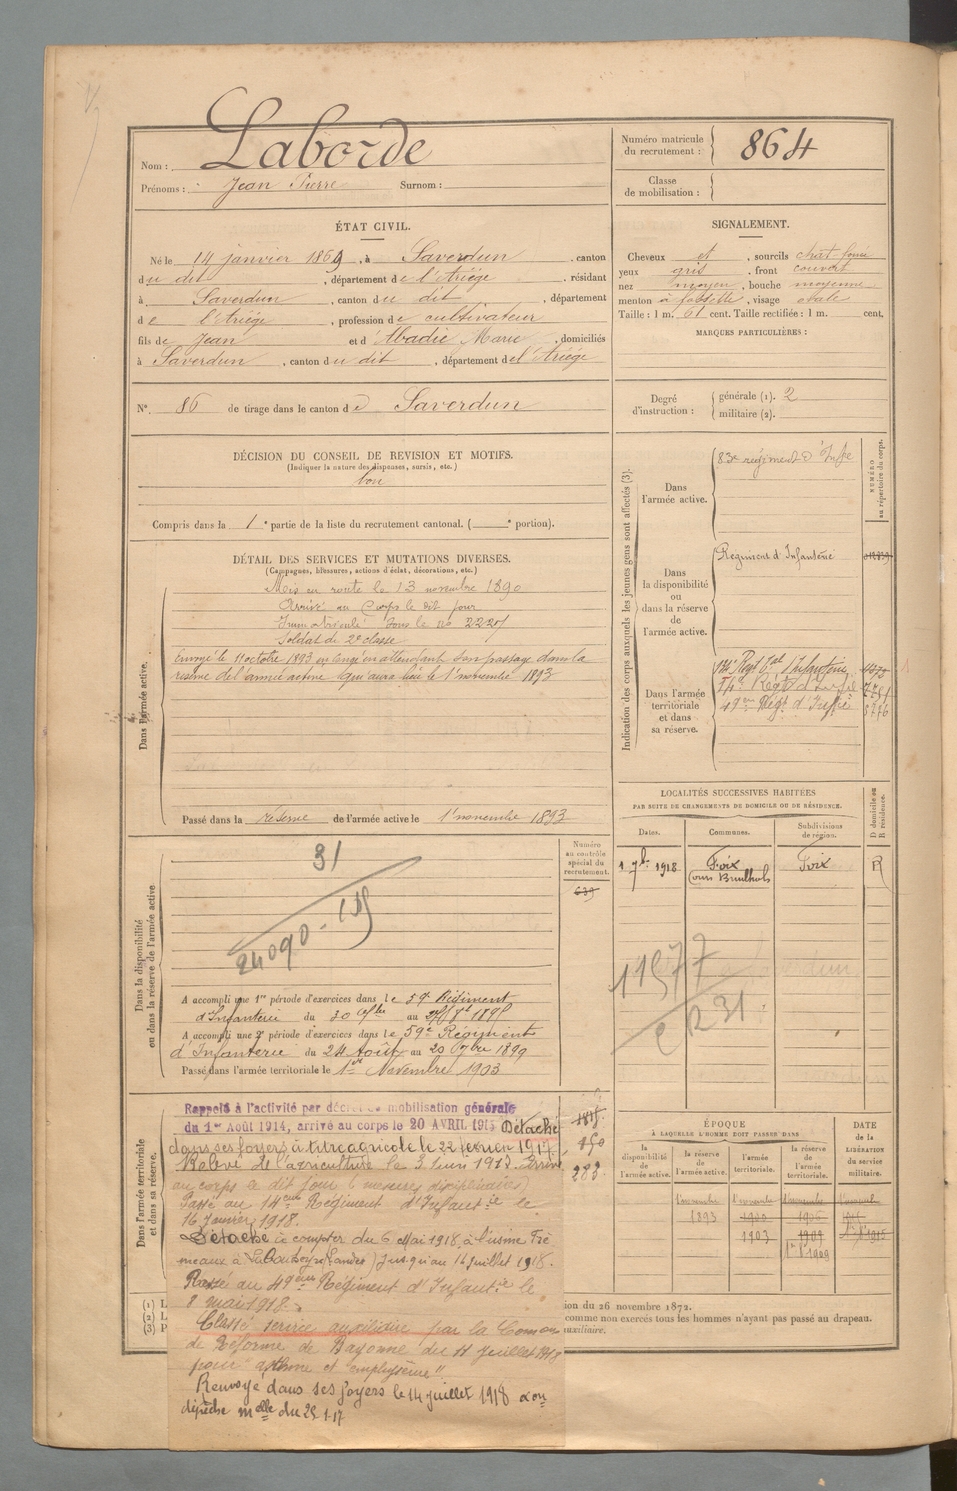 Nom : Laborde
Prénoms : Jean Pierre Surnom :
Numéro matricule
du recrutement : 864
Classe
de mobilisation :
ÉTAT CIVIL.
Né le 14 janvier 1869, à Saverdun, canton
du dit, département de l'Ariége, résidant
à Saverdun, canton du dit, département
de l'Ariége, profession de cultivateur
fils de Jean et d'Abadie Marie, domiciliés
à Saverdun, canton du dit, département de l'Ariége
SIGNALEMENT.
Cheveux et, sourcils chat-foncé
yeux gris, front couvert
nez moyen, bouche moyenne
menton à fossette, visage ovale
Taille : 1 m. 61 cent. Taille rectifiée : 1 m. cent.
MARQUES PARTICULIÈRES :
N° 86 de tirage dans le canton de Saverdun
Degré
d'instruction :
générale (1). 2
militaire (2).
DÉCISION DU CONSEIL DE REVISION ET MOTIFS.
(Indiquer la nature des dispenses, sursis, etc.)
bon
Compris dans la 1e partie de la liste du recrutement cantonal. ( e portion).
DÉTAIL DES SERVICES ET MUTATIONS DIVERSES.
(Campagnes, blessures, actions d'éclat, décorations, etc.)
Dans l'armée active.
Mis en route le 13 novembre 1890
Arrivé au Corps le dit jour
Immatriculé sous le no
Soldat de 2e classe
Envoyé le 11 octobre 1893 en congé en attendant son passage dans la
réserve de l'armée active qui aura lieu le 1er novembre 1893
Passé dans la réserve de l'armée active le 1er novembre 1893
Indication des corps auxquels les jeunes gens sont affectés (3).
NUMÉRO
au répertoire du corps.
Dans
l'armée active.
83e régiment d'Infie
Dans
la disponibilité
ou
dans la réserve
de
l'armée active.
Régiment d'Infanterie
Dans l'armée
territoriale
et dans
sa réserve.
134e Régt tal d'Infanterie
14e Régt d'Infie
49eme Régt d'Inffie
5776
LOCALITÉS SUCCESSIVES HABITÉES
PAR SUITE DE CHANGEMENTS DE DOMICILE OU DE RÉSIDENCE.
Dates. Communes. Subdivisions
de région.
D domicile ou
R résidence.
1 7b 1918 Foix Foix R
Cours
Dans la disponibilité
ou dans la réserve de l'armée active
Numéro
au contrôle
spécial du
recrutement.
639
31
24090-
11977
R 231
A accompli une 1re période d'exercices dans le 59e Régiment
d'Infanterie du 30 au
A accompli une 2e période d'exercices dans le 59e Régiment
d'Infanterie du 24 Août au 20 7bre 1899
Passé dans l'armée territoriale le 1er Novembre 1903
Dans l'armée territoriale
et dans sa réserve.
Rappelé à l'activité par décret de mobilisation générale
du 1er Août 1914, arrivé au corps le 20 AVRIL 1915 Détaché
dans ses foyers à titre agricole le 22 février 1917.
Relevé de l'agriculture le 3 juin 1917. Arrivé
au corps le dit jour (mesures disciplinaires)
Passé au 14eme Régiment d'Infantie le
16 Janvier 1918.
Détaché à compter du 6 Mai 1918 à l'usine Fré
meaux à (Landes) jusqu'au 14 juillet 1918.
Passé au 49eme Régiment d'Infantie le
8 mai 1918.
Classé service auxiliaire par la Comon
de Réforme de Bayonne du 11 Juillet 1918
pour "asthme et emphysème"
Renvoyé dans ses foyers le 14 juillet 1918 Son
dépêche melle du 25-1-17
150
283
ÉPOQUE
À LAQUELLE L'HOMME DOIT PASSER DANS
la
disponibilité
de
l'armée active.
la réserve
de
l'armée active.
l'armée
territoriale.
la réserve
de
l'armée
territoriale.
DATE
de la
LIBÉRATION
du service
militaire.
1er novembre 1er novembre 1er novembre 1er novembre
1893 1900 1906 1915
1903 1909
1er 8bre 1909
(1) L
(2) L
(3) P
ion du 26 novembre 1872.
comme non exercés tous les hommes n'ayant pas passé au drapeau.
uxiliaire.